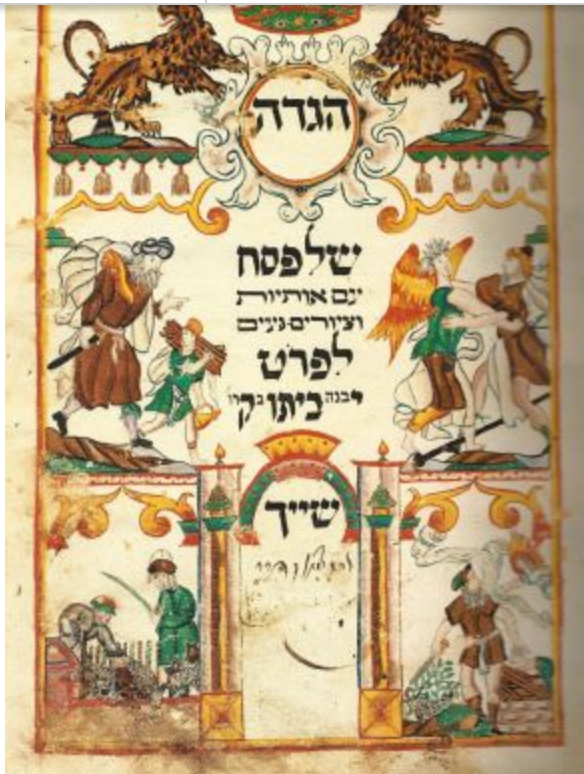 הגדה
של פסח
עם אותיות
וציורים נעים
לפרט
יבנה ביתו בקרו'
שייך